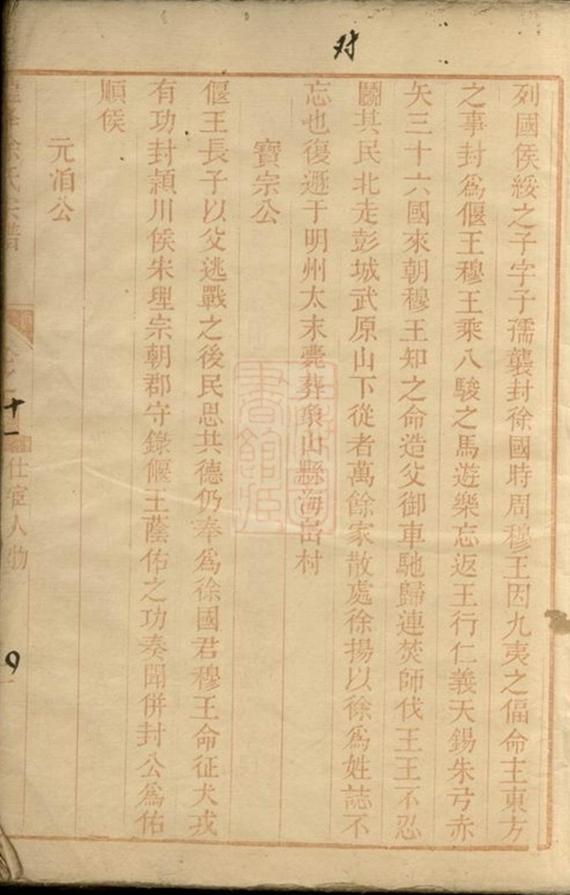 对
列國侯綏之子字子孺襲封徐國時周穆王因九夷之偪命主東方
之事封為偃王穆王乘八駿之馬遊樂忘返王行仁義天錫朱弓赤
矢三十六國來朝穆王知之命造父御車馳歸連焚師伐王王不忍
鬭其民北走彭城武原山下從者萬餘家散處徐揚以徐為姓誌不
忘也復遯于明州太末薨葬象山縣海島村
寶宗公
偃王長子以父逃戰之後民思其德仍奉為徐國君穆王命征犬戎
有功封潁川侯宋理宗朝郡守錄偃王蔭佑之功奏聞併封公為佑
順侯
元洎公
徐氏宗譜
卷之十一
仕宦人物
9